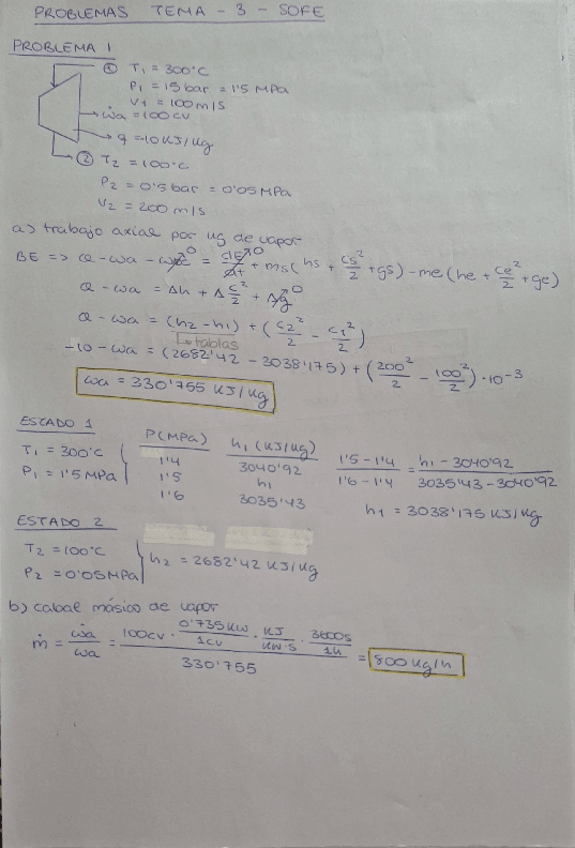 PROBLEMAS TEMA - 3 - SOFE
PROBLEMA 1
① T₁ = 300°C
P₁ = 15 bar = 1'5 MPa
V₁ = 100 m/s
ẇa = 100 CV
q = -10 KJ/kg
② T₂ = 100°C
P₂ = 0'5 bar = 0'05 MPa
V₂ = 200 m/s
a) trabajo axial por kg de vapor
BE => Q - wa - = dE/dt⁰ + ms(hs + cs²/2 + gs) - me(he + ce²/2 + ge)
Q - wa = Δh + Δ c²/2 + Δg⁰
Q - wa = (h2 - h1) + (c2²/2 - c1²/2)
tablas
-10 - wa = (2682'42 - 3038'175) + (200²/2 - 100²/2) · 10⁻³
wa = 330'755 KJ/kg
ESTADO 1
T₁ = 300°C
P₁ = 1'5 MPa
P(MPa) h₁ (KJ/kg)
1'4 3040'92
1'5 h₁
1'6 3035'43
1'5 - 1'4 / 1'6 - 1'4 = h₁ - 3040'92 / 3035'43 - 3040'92
h₁ = 3038'175 KJ/kg
ESTADO 2
T₂ = 100°C
P₂ = 0'05 MPa
h₂ = 2682'42 KJ/kg
b) cabal másico de vapor
ṁ = ẇa / wa = 100 CV · 0'735 KW / 1 CV · KJ / KW·S · 3600 s / 1 h / 330'755 = 800 kg/h